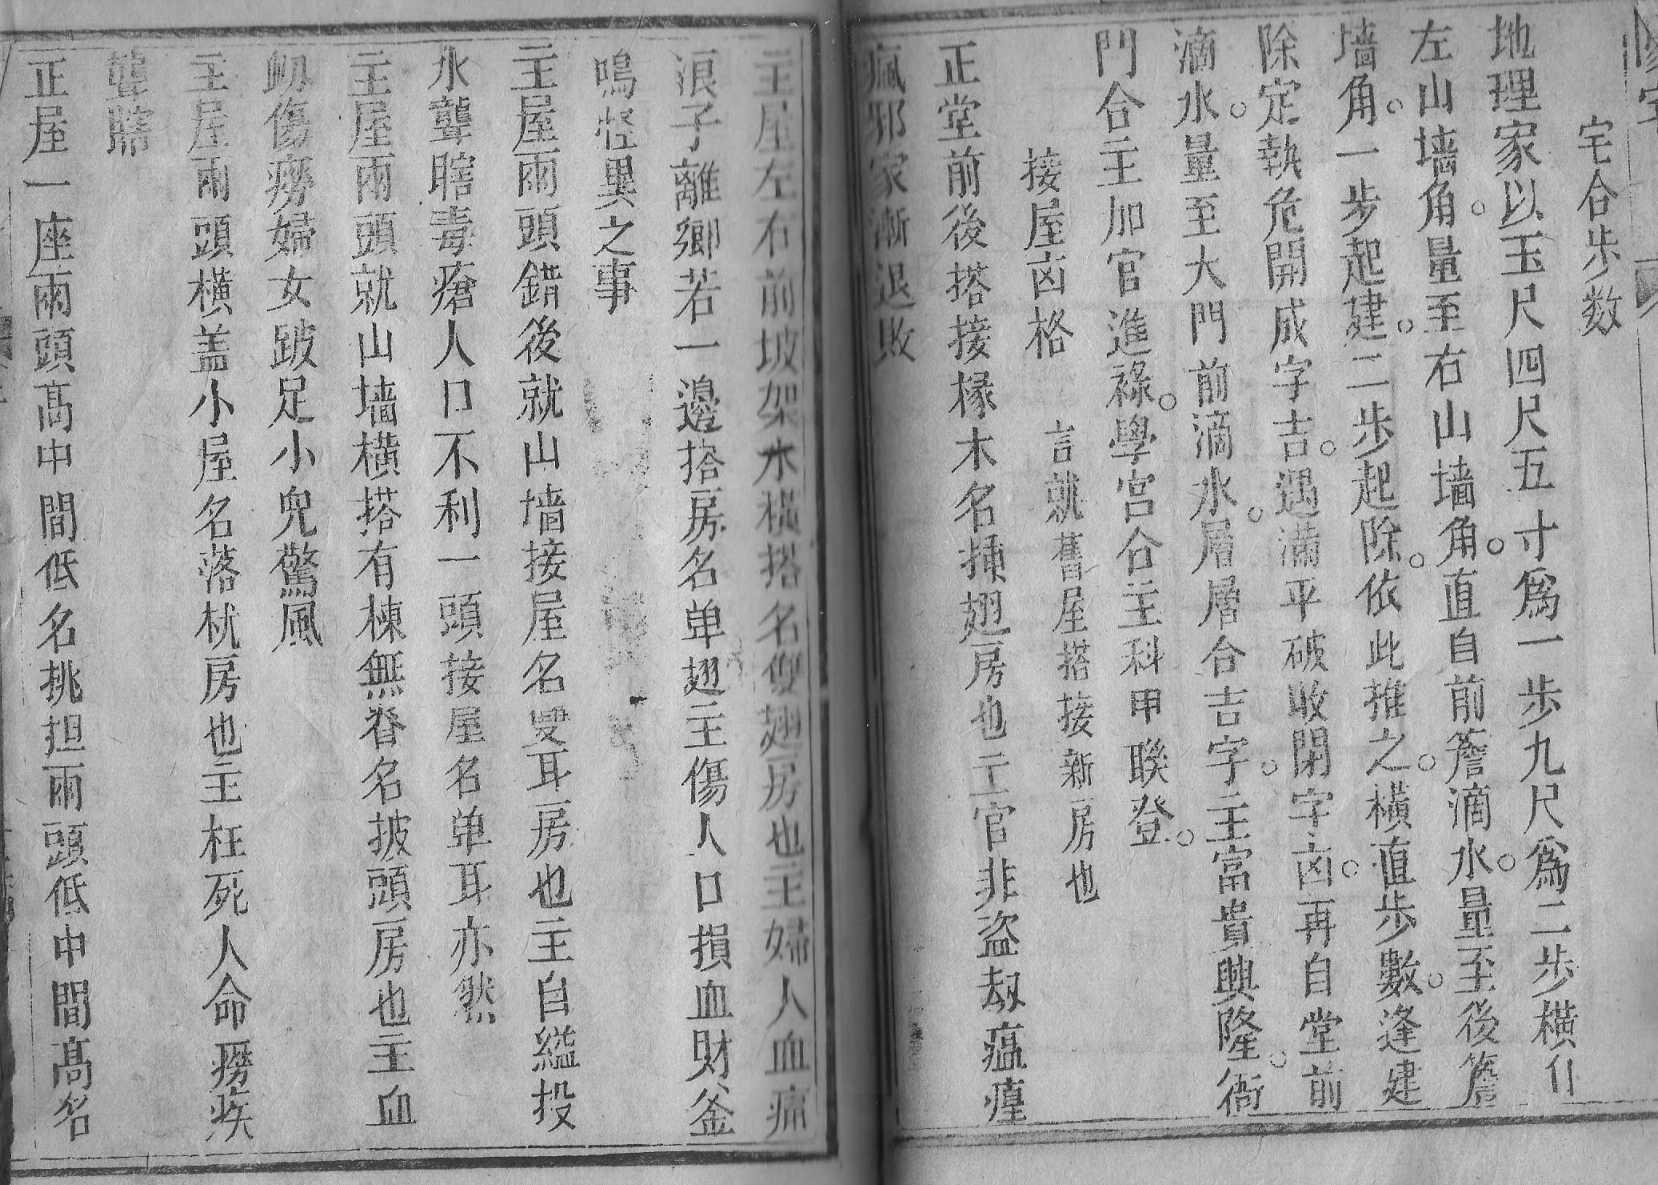 陽宅
宅合步数
地理家以玉尺四尺五寸爲一步九尺爲二步橫从
左山墻角量至右山墻角直自前簷滴水量至後簷
墻角一步起建二步起除依此推之橫直步數逢建
除定執危開成字吉遇滿平破收閉字凶再自堂前
滴水量至大門前滴水層層合吉字主富貴興隆衙
門合主加官進祿學宮合主科甲聯登
接屋凶格　言就舊屋搭接新房也
正堂前後搭接椽木名揷翅房也主官非盜刼瘟瘽
瘋邪家漸退敗
主屋左右前坡架木橫搭名雙翅房也主婦人血癆
浪子離鄉若一邊搭房名单翅主傷人口損血財釜
鳴怪異之事
主屋兩頭錯後就山墻接屋名雙耳房也主自縊投
水聾瞎毒瘡人口不利一頭接屋名单耳亦然
主屋兩頭就山墻橫搭有棟無脊名披頭房也主血
刼傷癆婦女跛足小兒驚風
主屋兩頭橫盖小屋名落枕房也主枉死人命癆疾
聾瞎
正屋一座兩頭髙中間低名挑担兩頭低中間髙名